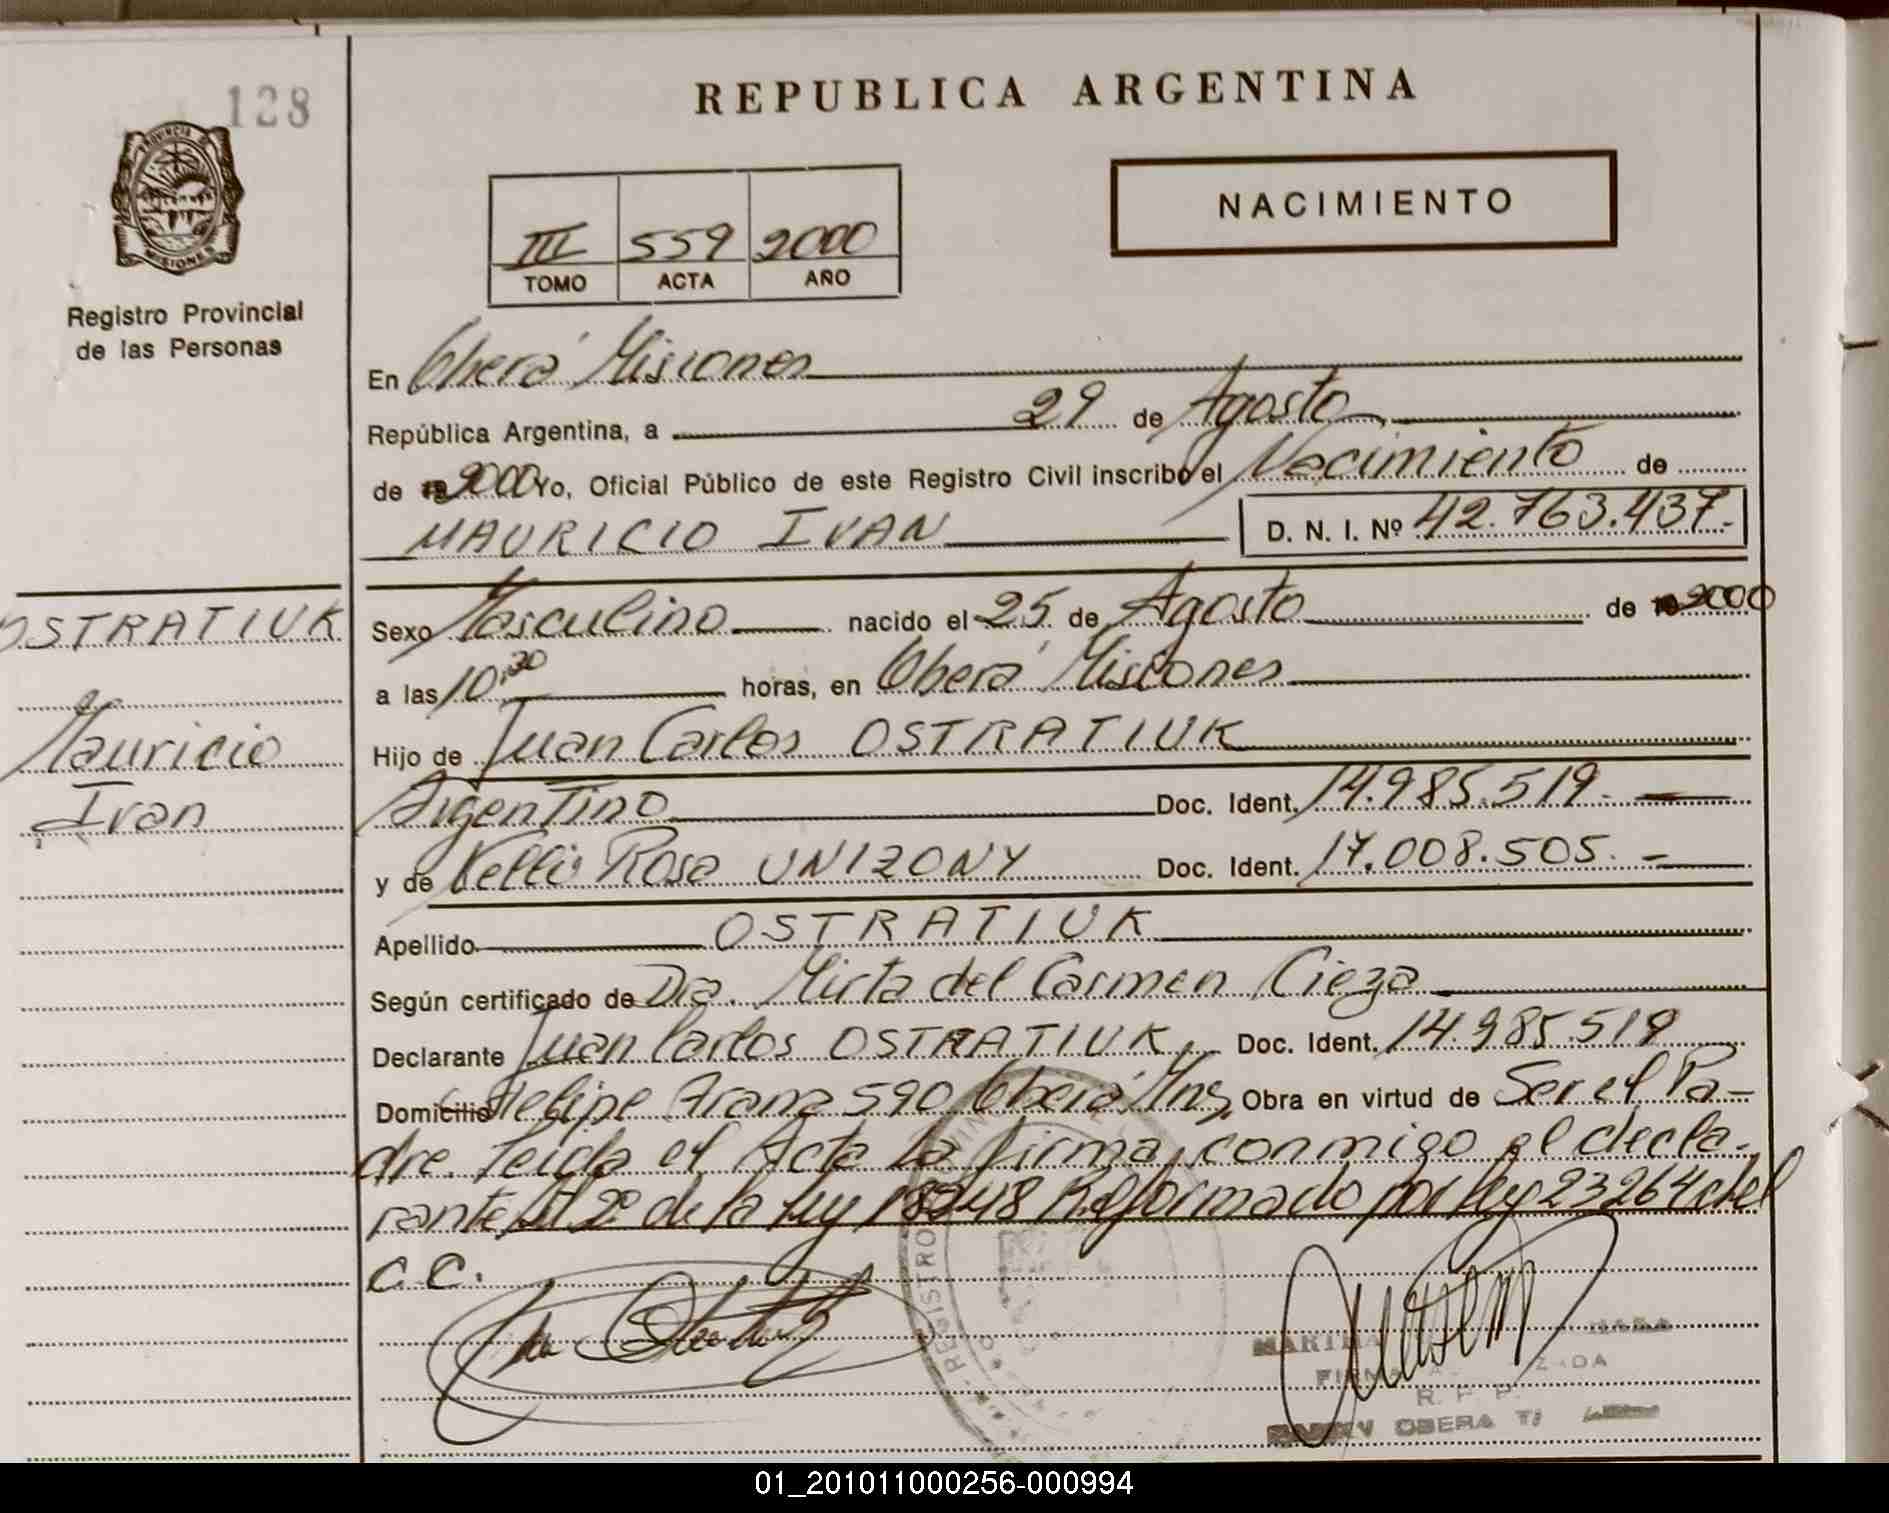 128
REPUBLICA ARGENTINA
PROVINCIA DE
MISIONES
Registro Provincial
de las Personas
III 559 2000
TOMO ACTA AÑO
NACIMIENTO
En Oberá Misiones
República Argentina, a 29 de Agosto
de 2000 Yo, Oficial Público de este Registro Civil inscribo el Nacimiento de
MAURICIO IVAN D. N. I. Nº 42.763.437.-
OSTRATIUK
Mauricio
Ivan
Sexo Masculino nacido el 25 de Agosto de 2000
a las 10:30 horas, en Oberá Misiones
Hijo de Juan Carlos OSTRATIUK
Argentino Doc. Ident. 14.985.519.-
y de Nelli Rosa UNIZONY Doc. Ident. 17.008.505.-
Apellido OSTRATIUK
Según certificado de Dra. Mirta del Carmen Cieza
Declarante Juan Carlos OSTRATIUK. Doc. Ident. 14.985.519
Domicilio Felipe Aranz 590 Oberá Mns. Obra en virtud de Ser el Pa-
dre. Leida el Acta La firma conmigo el decla-
rante Art 2º de la Ley 18248 Reformado por Ley 23264 del
C.C.
REGISTRO
MARTHA
FIRMA
R. P. P.
OBERA
01_201011000256-000994